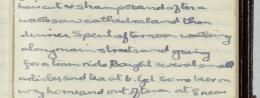 haircut & shampoo and after a
walk saw cathedral and then
dinner. Spent afternoon walking
along main streets and going
for tram ride. Bought several small
articles and tea at 6. Got some beer on
way home and out of town at 8 near